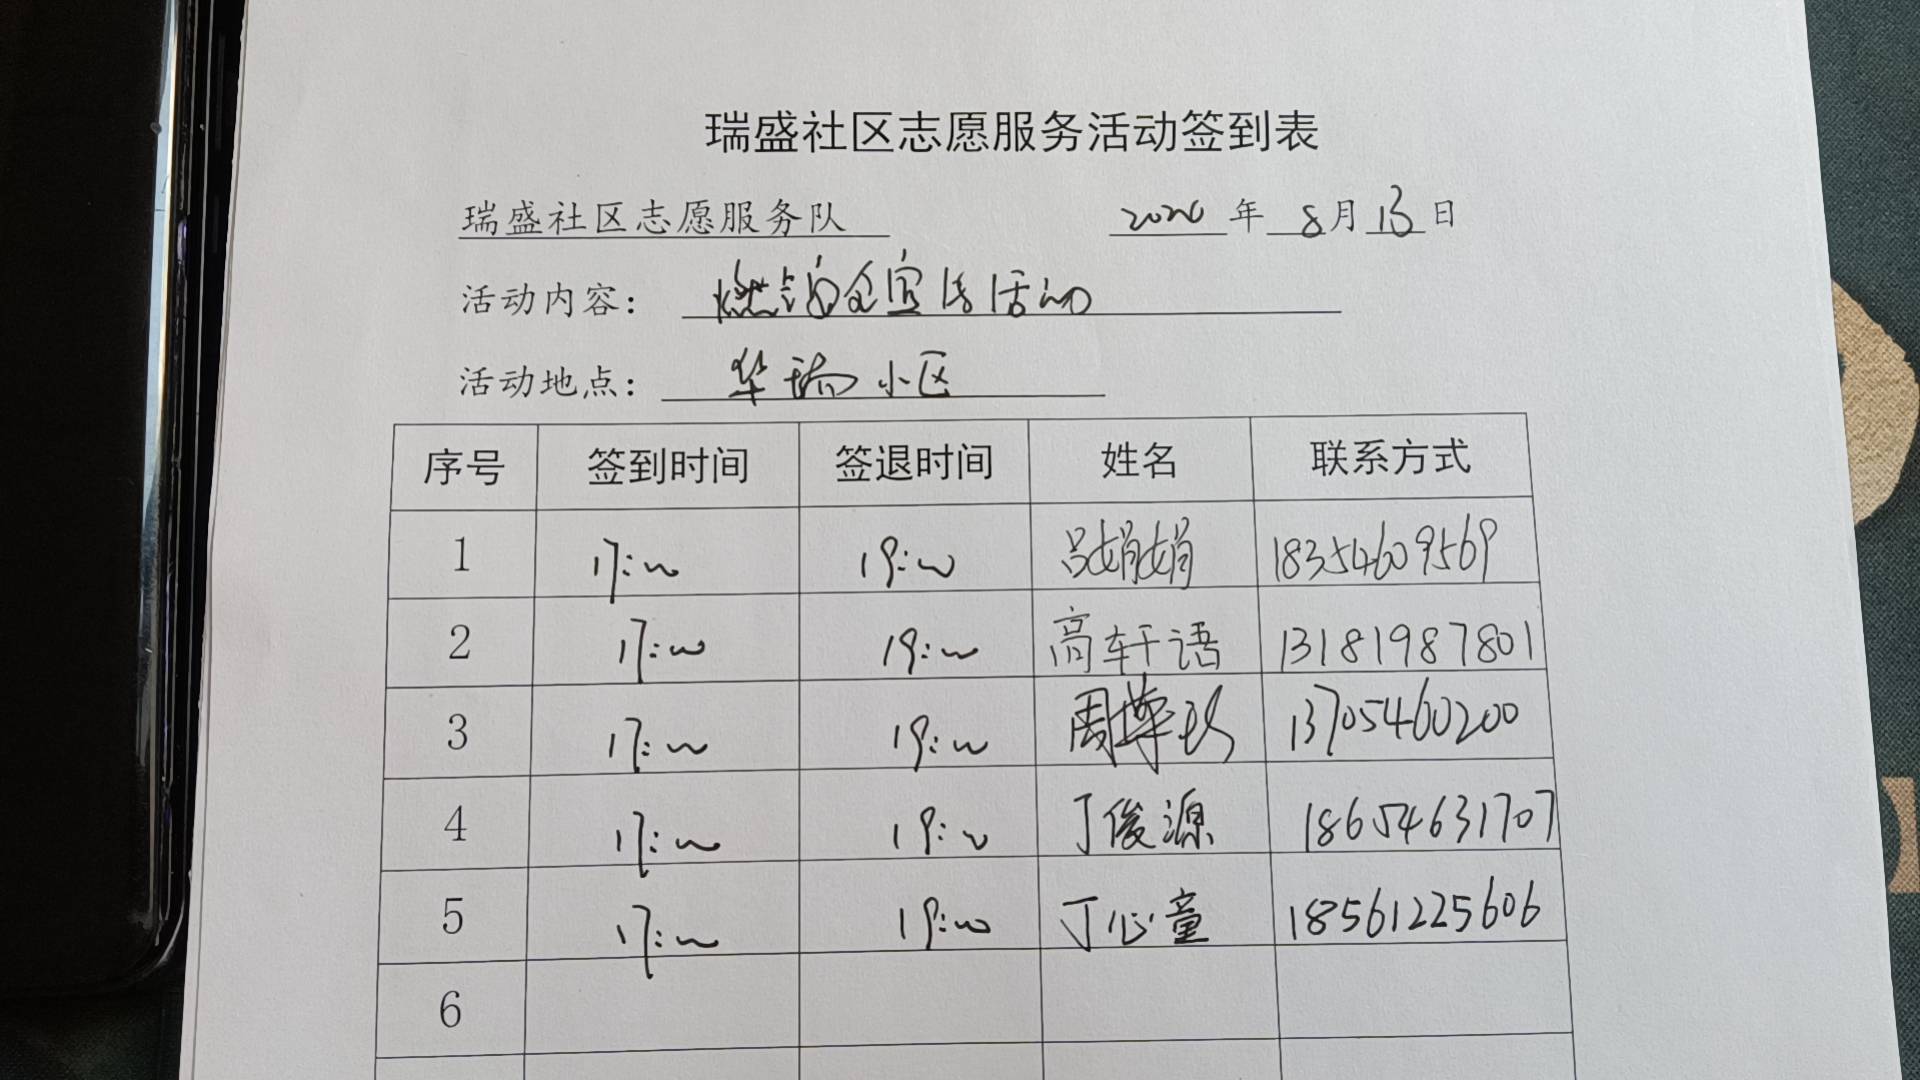 瑞盛社区志愿服务活动签到表
瑞盛社区志愿服务队 2020 年 8 月 13 日
活动内容： 燃气安全宣传活动
活动地点： 华瑞小区
序号 签到时间 签退时间 姓名 联系方式
1 17:00 19:00 吕娟娟 18354609569
2 17:00 19:00 高轩语 13181987801
3 17:00 19:00 周 13705460200
4 17:00 19:00 丁俊源 18654631707
5 17:00 19:00 丁心童 18561225606
6